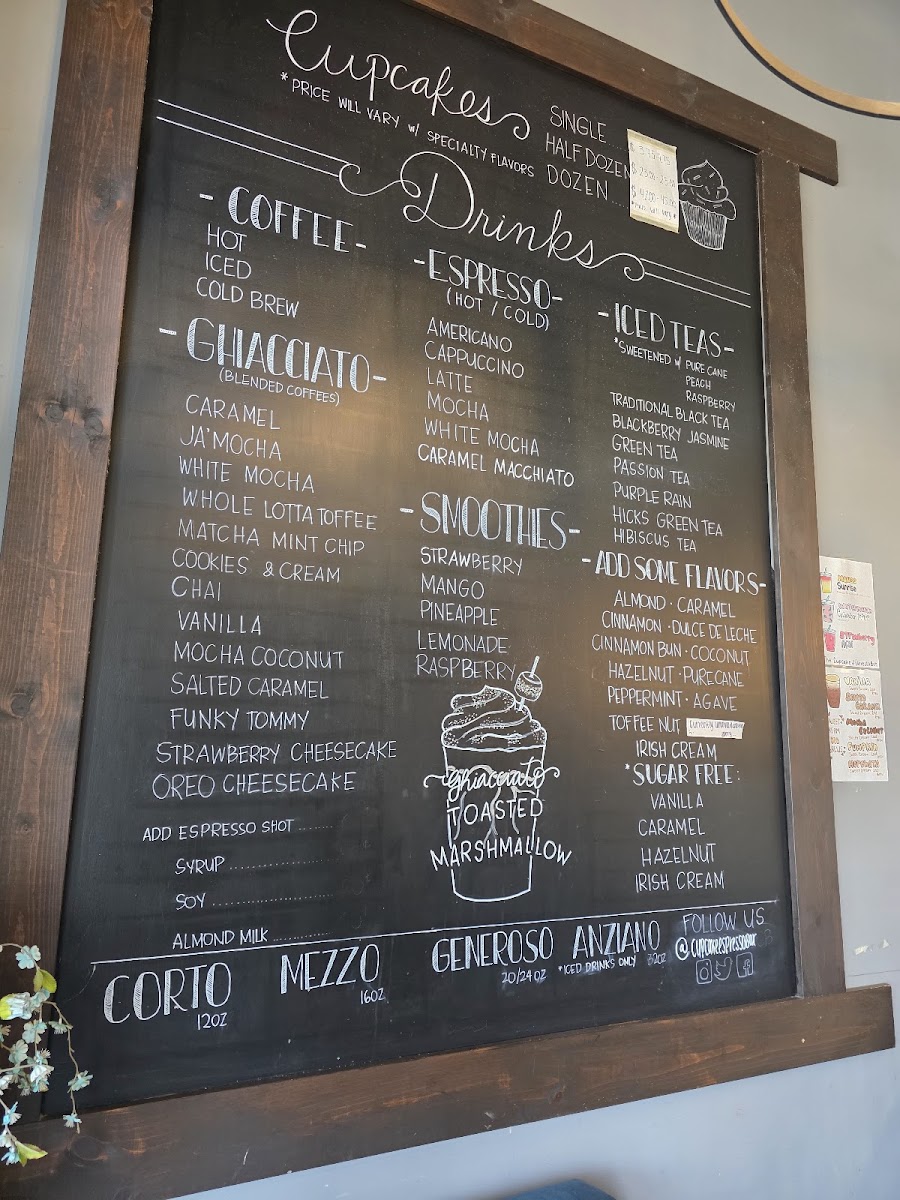 Cupcakes
* PRICE WILL VARY w/ SPECIALTY FLAVORS
SINGLE...
HALF DOZEN
DOZEN ....
Drinks
- COFFEE -
HOT
ICED
COLD BREW
- GHIACCIATO -
(BLENDED COFFEES)
CARAMEL
JA'MOCHA
WHITE MOCHA
WHOLE LOTTA TOFFEE
MATCHA MINT CHIP
COOKIES & CREAM
CHAI
VANILLA
MOCHA COCONUT
SALTED CARAMEL
FUNKY TOMMY
STRAWBERRY CHEESECAKE
OREO CHEESECAKE
ADD ESPRESSO SHOT ........
SYRUP ................
SOY ..................
ALMOND MILK ...........
- ESPRESSO -
(HOT / COLD)
AMERICANO
CAPPUCCINO
LATTE
MOCHA
WHITE MOCHA
CARAMEL MACCHIATO
- SMOOTHIES -
STRAWBERRY
MANGO
PINEAPPLE
LEMONADE
RASPBERRY
ghiacciato
TOASTED
MARSHMALLOW
- ICED TEAS -
*SWEETENED w/ PURE CANE
PEACH
RASPBERRY
TRADITIONAL BLACK TEA
BLACKBERRY JASMINE
GREEN TEA
PASSION TEA
PURPLE RAIN
HICKS GREEN TEA
HIBISCUS TEA
- ADD SOME FLAVORS -
ALMOND · CARAMEL
CINNAMON · DULCE DE LECHE
CINNAMON BUN · COCONUT
HAZELNUT · PURE CANE
PEPPERMINT · AGAVE
TOFFEE NUT
IRISH CREAM
*SUGAR FREE:
VANILLA
CARAMEL
HAZELNUT
IRISH CREAM
CORTO
12OZ
MEZZO
16OZ
GENEROSO
20/24 OZ
ANZIANO
*ICED DRINKS ONLY 32OZ
FOLLOW US
@cupcakespressobar
Mango
Sunrise
Strawberry